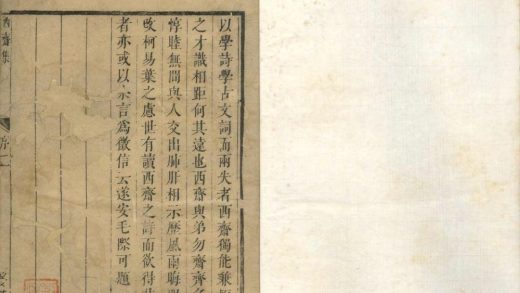 以學詩學古文詞而兩失者西齋獨能兼
之才識相距何其遠也西齋與弟勿齋齊名
惇睦無間與人交出肺肝相示歷風雨晦
改柯易葉之慮世有讀西齋之詩而欲得
者亦或以余言爲徵信云遂安毛際可題
齋集
序